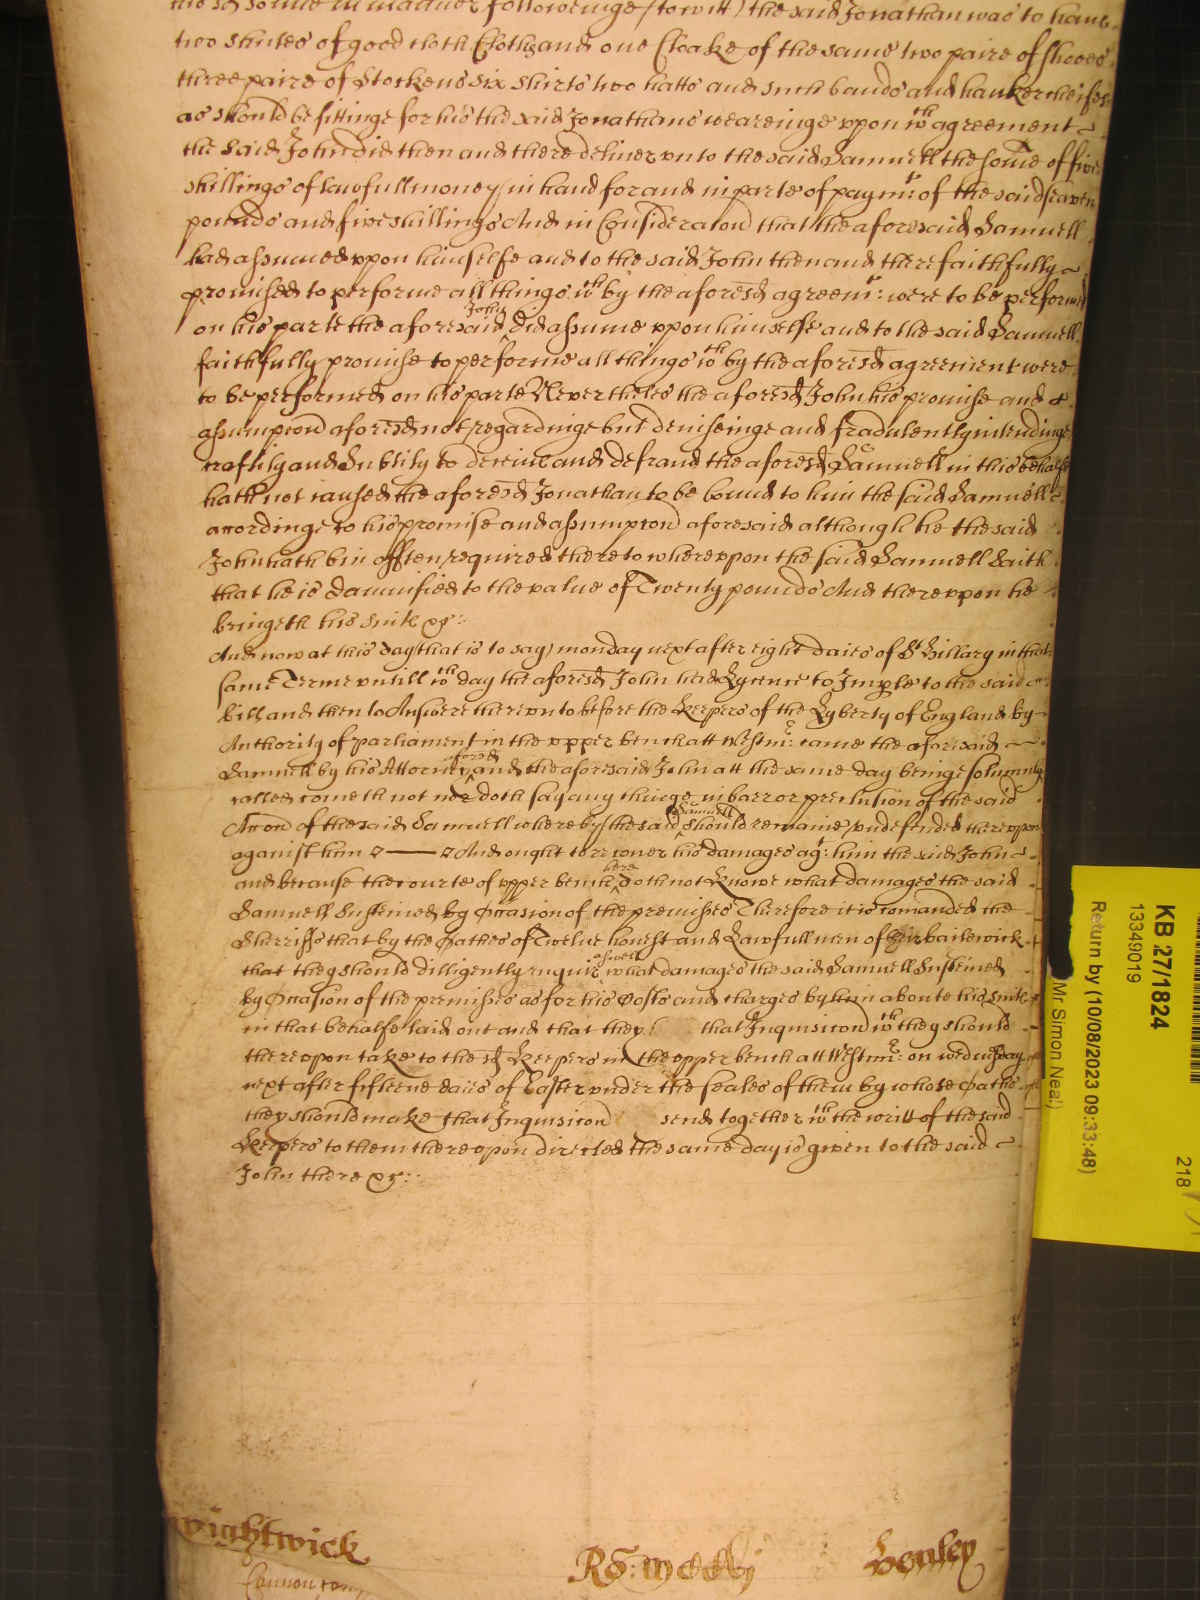 said Sonne in manner followeinge (to witt) the said Jonathan was to have
two shutes of good cloth Clothz and one Cloake of the same two paire of shooes
three paire of Stockens six shirts two hatts and such bands and hankercheifes
as should be fittinge for his the said Jonathans weareinge vppon wch agreement
the said John did then and there deliuer vnto the said Samuell the some of five
shillings of lawfull money in hand for and in parte of paymt: of the said seaven
pounds and five shillings And in Consideracon that the aforesaid Samuell
had assumed vppon himselfe and to the said John then and there faithfully
promised to performe all things wch by the aforesd agreemt: were to be performed
on his parte the aforesaid John did assume vppon himselfe and to the said Samuell
faithfully promise to performe all things wch by the aforesd agreement were
to be performed on his parte Nevertheles the aforesd John his promise and
assumpcon aforesd not regardinge but deviseinge and fradulently intendinge
craftily and Subtily to deceive and defraud the aforesd Samuell in this behalfe
hath not caused the aforesd Jonathan to be bound to him the said Samuell
accordinge to his promise and assumpcon aforesaid although he the said
John hath bin often required thereto wherevppon the said Samuell Saith
that he is damnified to the value of Twenty pounds And therevppon he
bringeth his suite &c:
And now at this day (that is to say) monday next after eight daies of St Hillary in that
same Terme vntill wch day the aforesd John had Lycence to Imple to the said
bill and then to Answere therevnto before the Keepers of the Lyberty of England by
Authority of parliament in the vpper bench att Westmr: came the aforesaid
Samuell by his Attorney aforesd and the aforesaid John att the same day beinge solumnly
called cometh not nor doth say any thinge in barr or preclusion of the said
Accon of the said Samuell whereby the said Samuell should remaine vndefended therevppon
against him And ought to recouer his damages agt: him the said John
and because the courte of vpper bench here doth not Knowe what damages the said
Samuell Susteined by Occasion of the premisses Therefore it is comanded the
Sherriffs that by the Oathes of Twelue honest and Lawfull men of their bailewick
that they should dilligently enquire aswell what damages the said Samuell Susteined
by Occasion of the premisses as for his Costs and charges by him aboute his suite
in that behalfe laid out and that they that Inquisicon wch they should
therevppon take to the sd Keepers in the vpper bench att Westmr: on wednesday
next after fifteene daies of Easter vnder the seales of them by whose Oathe
they should make that Inquisicon send together wth the writt of the said
Keepers to them therevpon directed the same day is given to the said
John there &c:
Wightwick
Ro: Modly
Henley
KB 27/1824
13349019
Return by (10/08/2023 09:33:48)
Mr Simon Neal)
218